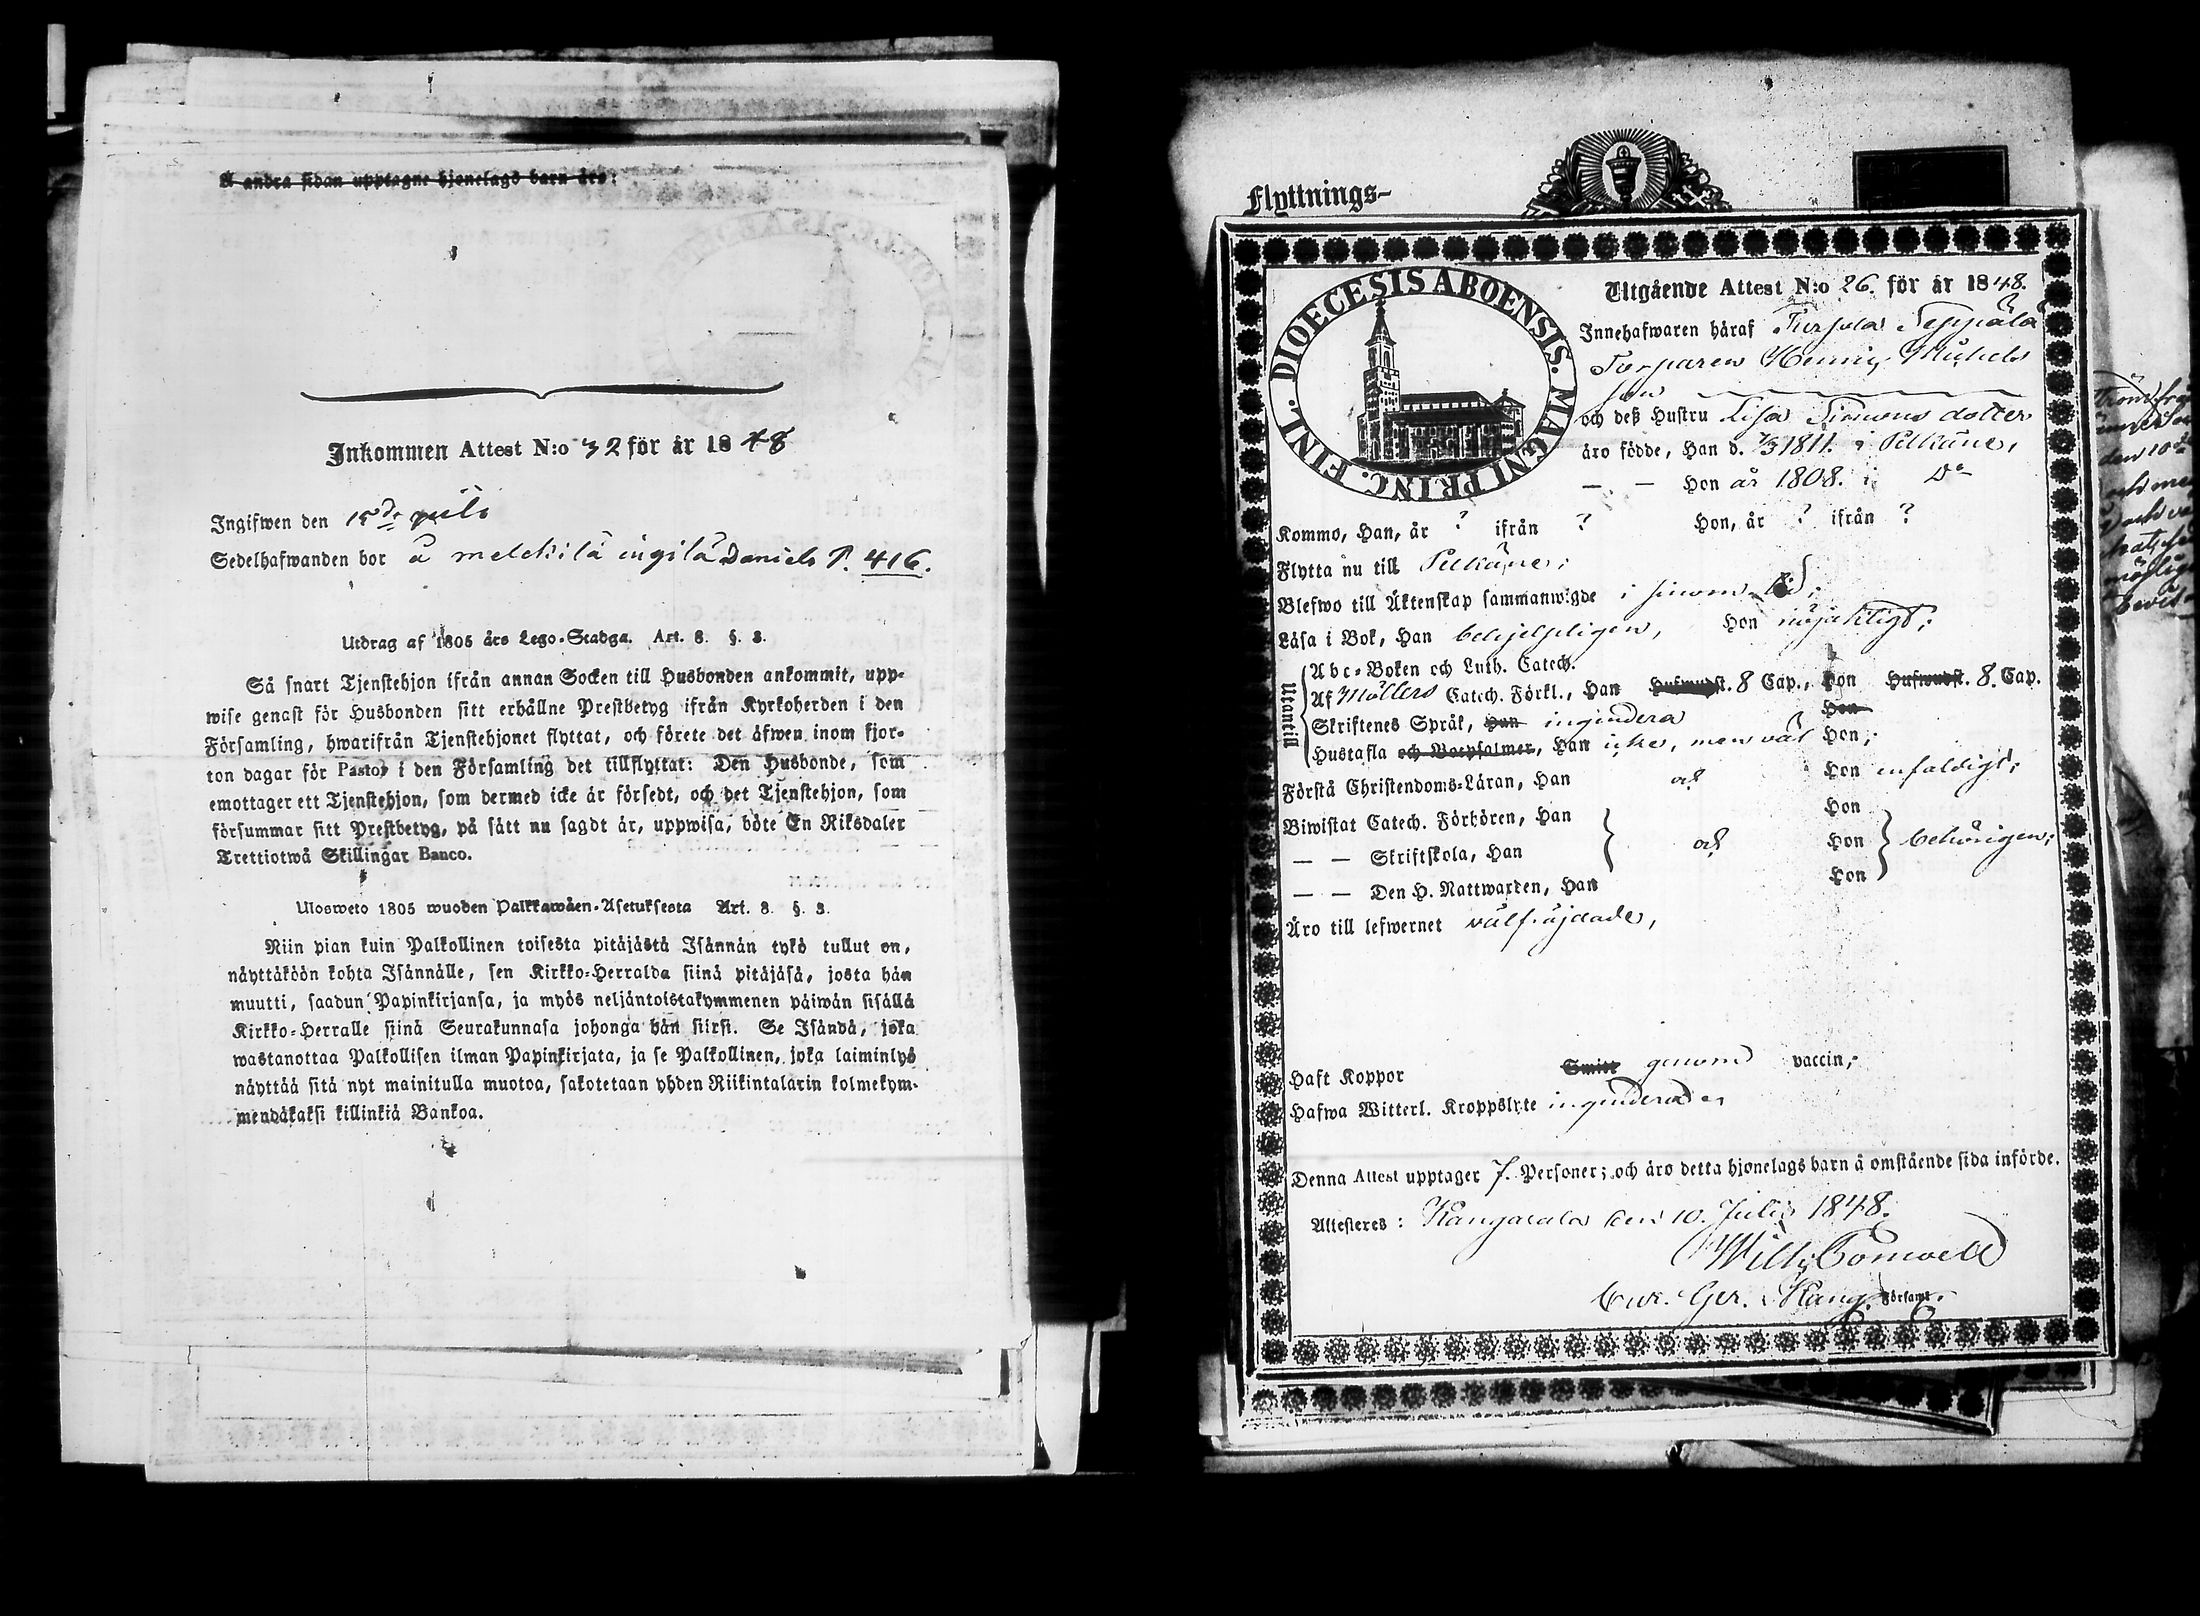 A andra sidan upptagne hjonelags barn äro:
Inkommen Attest N:o 32 för år 1848
Ingifwen den 15de juli
Sedelhafwanden bor å melckilä ingilä Daniels P. 416.
Utdrag af 1805 års Lego-Stadga. Art. 8. §. 3.
Så snart Tjenstehjon ifrån annan Socken till Husbonden ankommit, upp-
wise genast för Husbonden sitt erhållne Prestbetyg ifrån Kyrkoherden i den
Församling, hwarifrån Tjenstehjonet flyttat, och förete det äfwen inom fjor-
ton dagar för Pastor i den Församling det tillflyttat: Den Husbonde, som
emottager ett Tjenstehjon, som dermed icke är försedt, och det Tjenstehjon, som
försummar sitt Prestbetyg, på sätt nu sagdt är, uppwisa, böte En Riksdaler
Trettiotwå Skillingar Banco.
Ulosweto 1805 wuoden Palkkawäen-Asetuksesta Art. 8. §. 3.
Niin pian kuin Palkollinen toisesta pitäjästä Isännän tykö tullut on,
näyttäköön kohta Isännälle, sen Kirkko-Herralda siinä pitäjäsä, josta hän
muutti, saadun Papinkirjansa, ja myös neljäntoistakymmenen päiwän sisällä
Kirkko-Herralle siinä Seurakunnasa johonga hän siirsi. Se Isändä, joka
wastanottaa Palkollisen ilman Papinkirjata, ja se Palkollinen, joka laiminlyö
näyttää sitä nyt mainitulla muotoa, sakotetaan yhden Riikintalarin kolmekym-
mendäkaksi killinkiä Bankoa.
Flyttnings-
DIOECESIS ABOENSIS. MAGNI PRINC. FINL.
Utgående Attest N:o 26. för år 1848.
Innehafwaren häraf Turpela Seppälä
Torparen Henric Michels
son
och deß Hustru Lisa Simons dotter
äro födde, Han d. 1/3 1811. i Pelkäne,
— — Hon år 1808. i Do
Kommo, Han, år ? ifrån ? Hon, år ? ifrån ?
Flytta nu till Pelkäne;
Blefwo till Äktenskap sammanwigde i sinom tid;
Läsa i Bok, Han behjelpligen, Hon nöjaktligt;
Utantill
Abc-Boken och Luth. Catech.
Af Möllers Catech. Förkl., Han Hufwudst. 8 Cap., Hon Hufwudst. 8. Cap.
Skriftenes Språk, Han ingendera Hon
Hustafla och Botpsalmer, Han icke, men väl Hon;
Förstå Christendoms-Läran, Han och Hon enfaldigt;
Biwistat Catech. Förhören, Han Hon
— — Skriftskola, Han och Hon behörigen;
— — Den H. Nattwarden, Han Hon
Äro till lefwernet välfräjdade,
Haft Koppor Smitt genom vaccin;
Hafwa Witterl. Kroppslyte ingendera
Denna Attest upptager 7. Personer; och äro detta hjonelags barn å omstående sida införde.
Attesteres: Kangasala den 10. Julii 1848.
Cur. Ger. Kang. Församl.